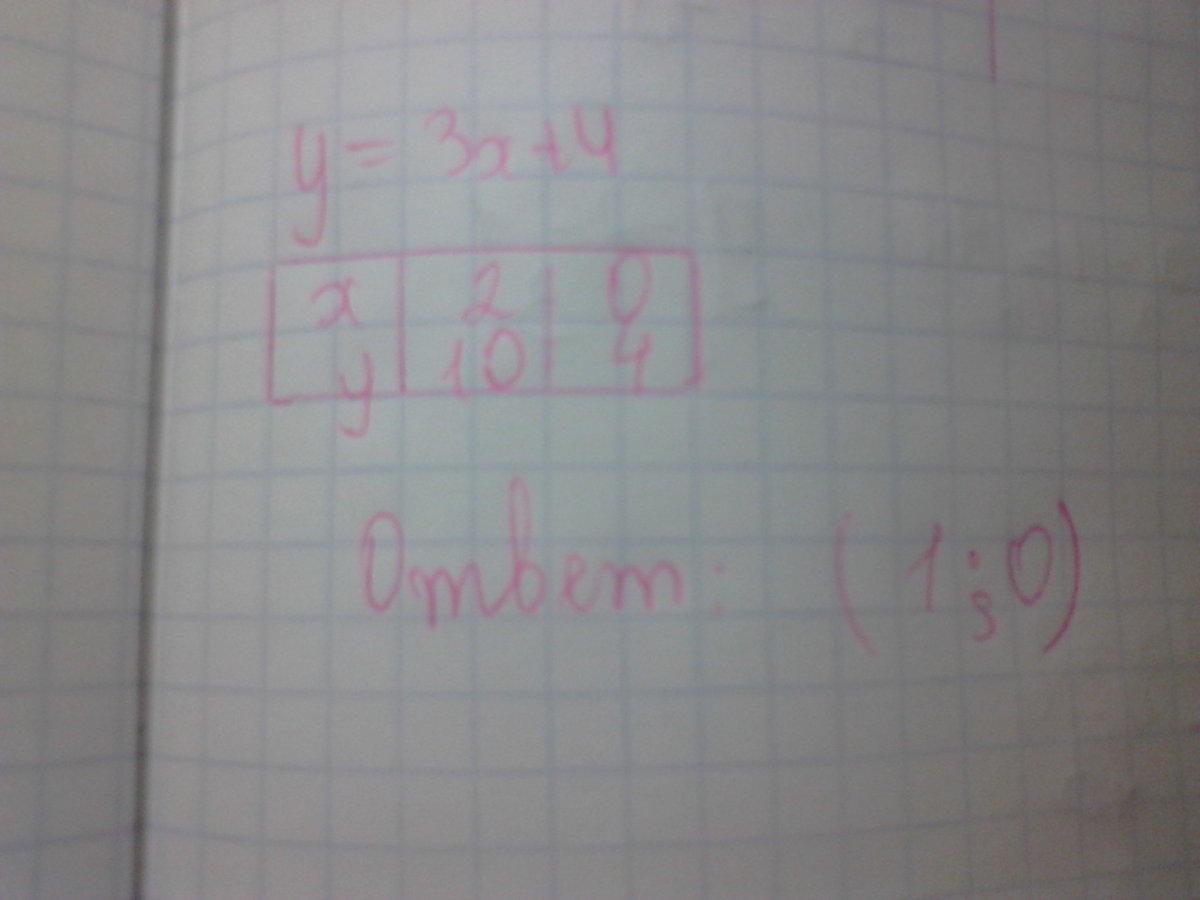 y = 3x+4
x 2 0
y 10 4
Ответ: (1;0)